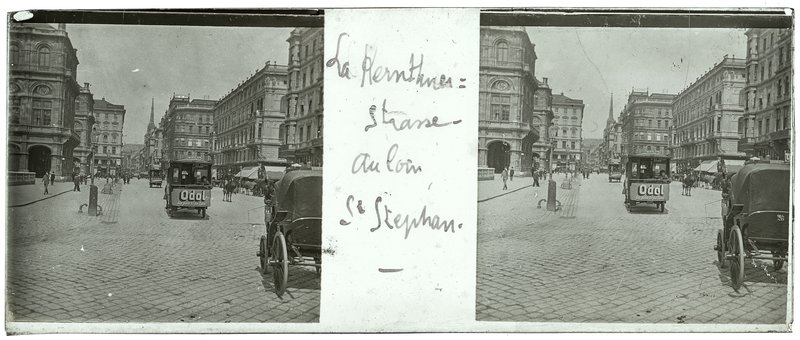 La Kernthner=
Strasse-
au loin
St Stephan.
Odol
Odol